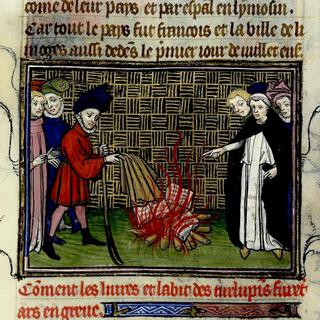 come de leur pays et par espal en lymosin.
Car tout le pays fut francois et la ville de li
moges aussi dedes le pmier iour de iuillet
Coment les liures et labit des turlupins furet
ars en greue.